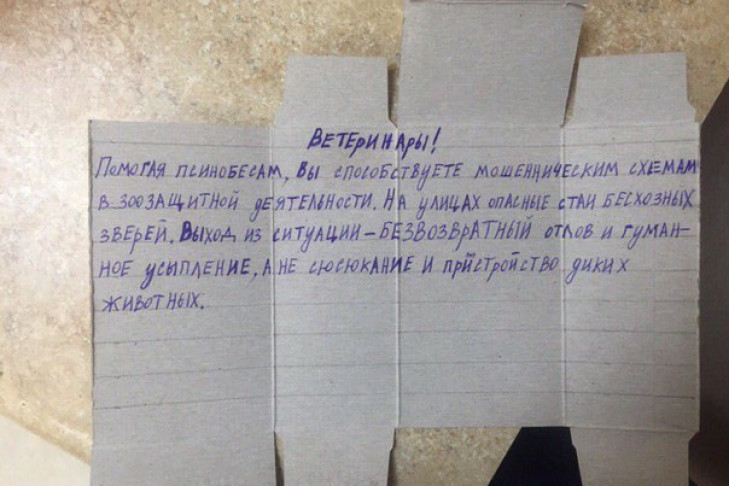 Ветеринары!
Помогая псинобесам, Вы способствуете мошенническим схемам
в зоозащитной деятельности. На улицах опасные стаи бесхозных
зверей. Выход из ситуации – БЕЗВОЗВРАТНЫЙ отлов и гуман-
ное усыпление, а не сюсюкание и пристройство диких
животных.